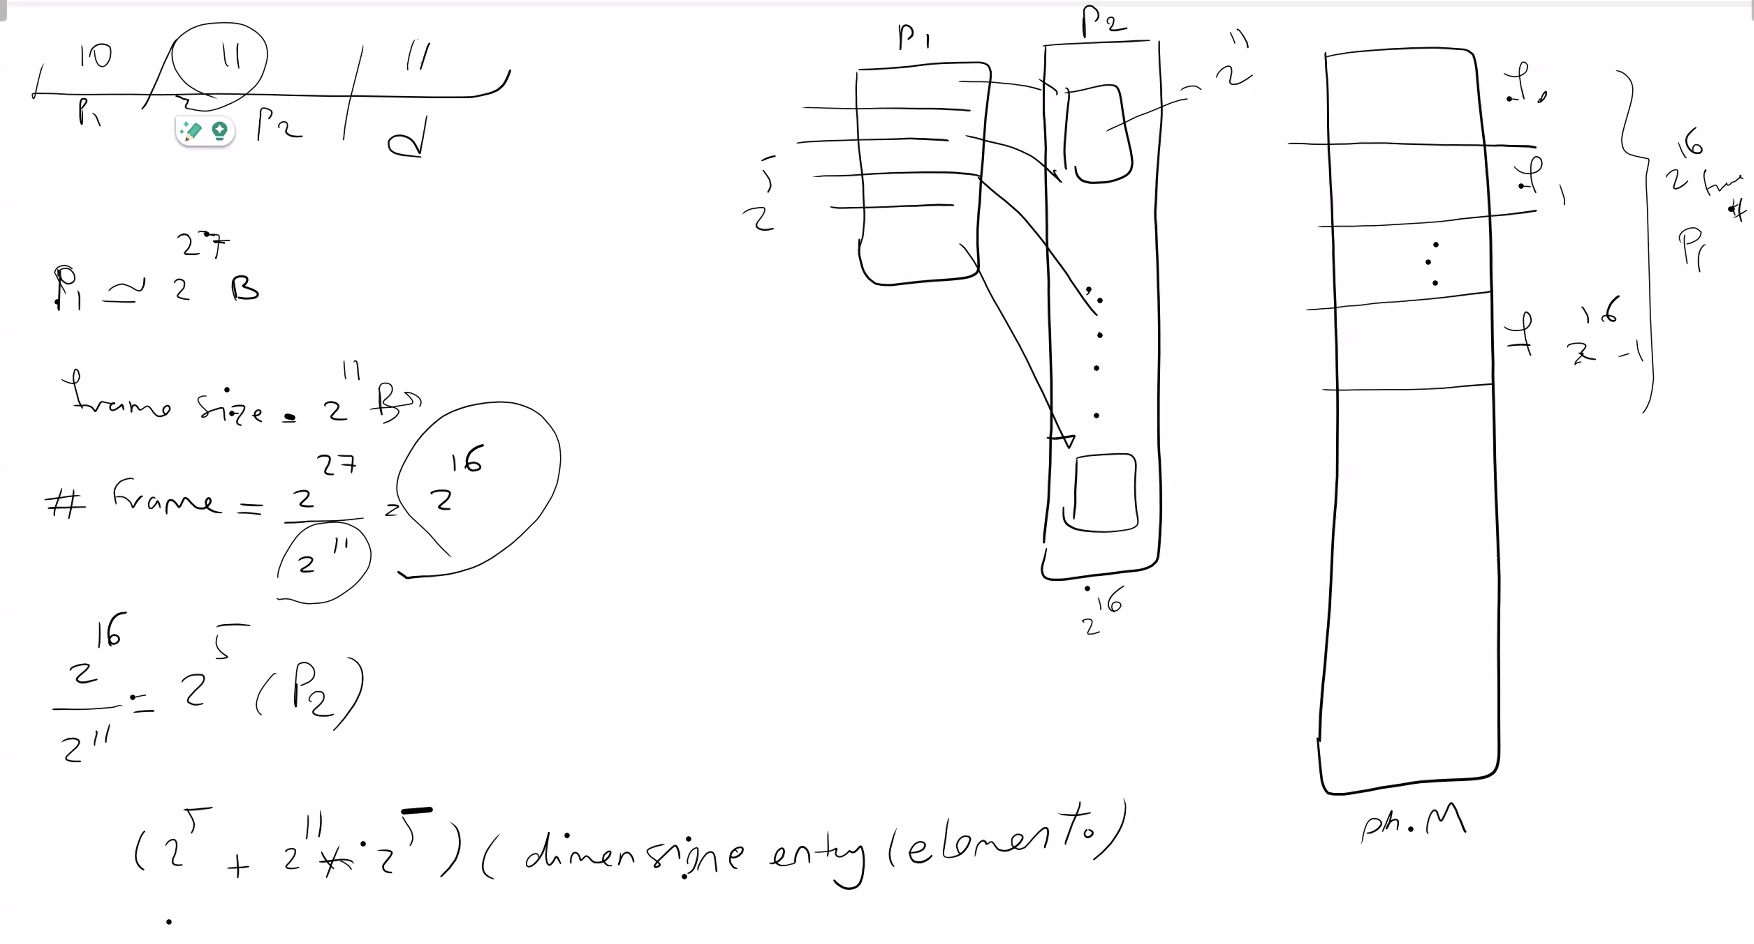 10 11 11
P1 P2 d
P1 ≃ 2^27 B
frame size = 2^11 B
# frame = 2^27 / 2^11 = 2^16
2^16 / 2^11 = 2^5 (P2)
(2^5 + 2^11 * 2^5) (dimensione entry (elemento)
P1
2^5
P2
2^11
2^16
f0
f1
f 2^16 -1
2^16
#
P1
ph.M